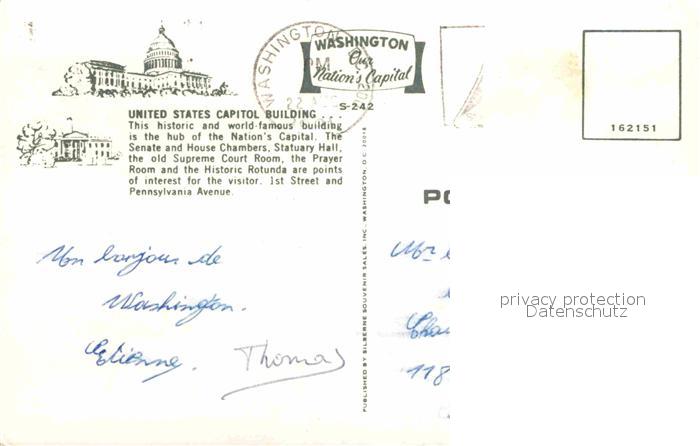 WASHINGTON
PM
22
WASHINGTON
Our
Nation's Capital
S-242
162151
UNITED STATES CAPITOL BUILDING . . .
This historic and world-famous building
is the hub of the Nation's Capital. The
Senate and House Chambers, Statuary Hall,
the old Supreme Court Room, the Prayer
Room and the Historic Rotunda are points
of interest for the visitor. 1st Street and
Pennsylvania Avenue.
PUBLISHED BY SILBERNE SOUVENIR SALES, INC., WASHINGTON, D.C. 20018
PO
Un bonjour de
Washington.
Etienne. Thomas
Mr
118
privacy protection
Datenschutz